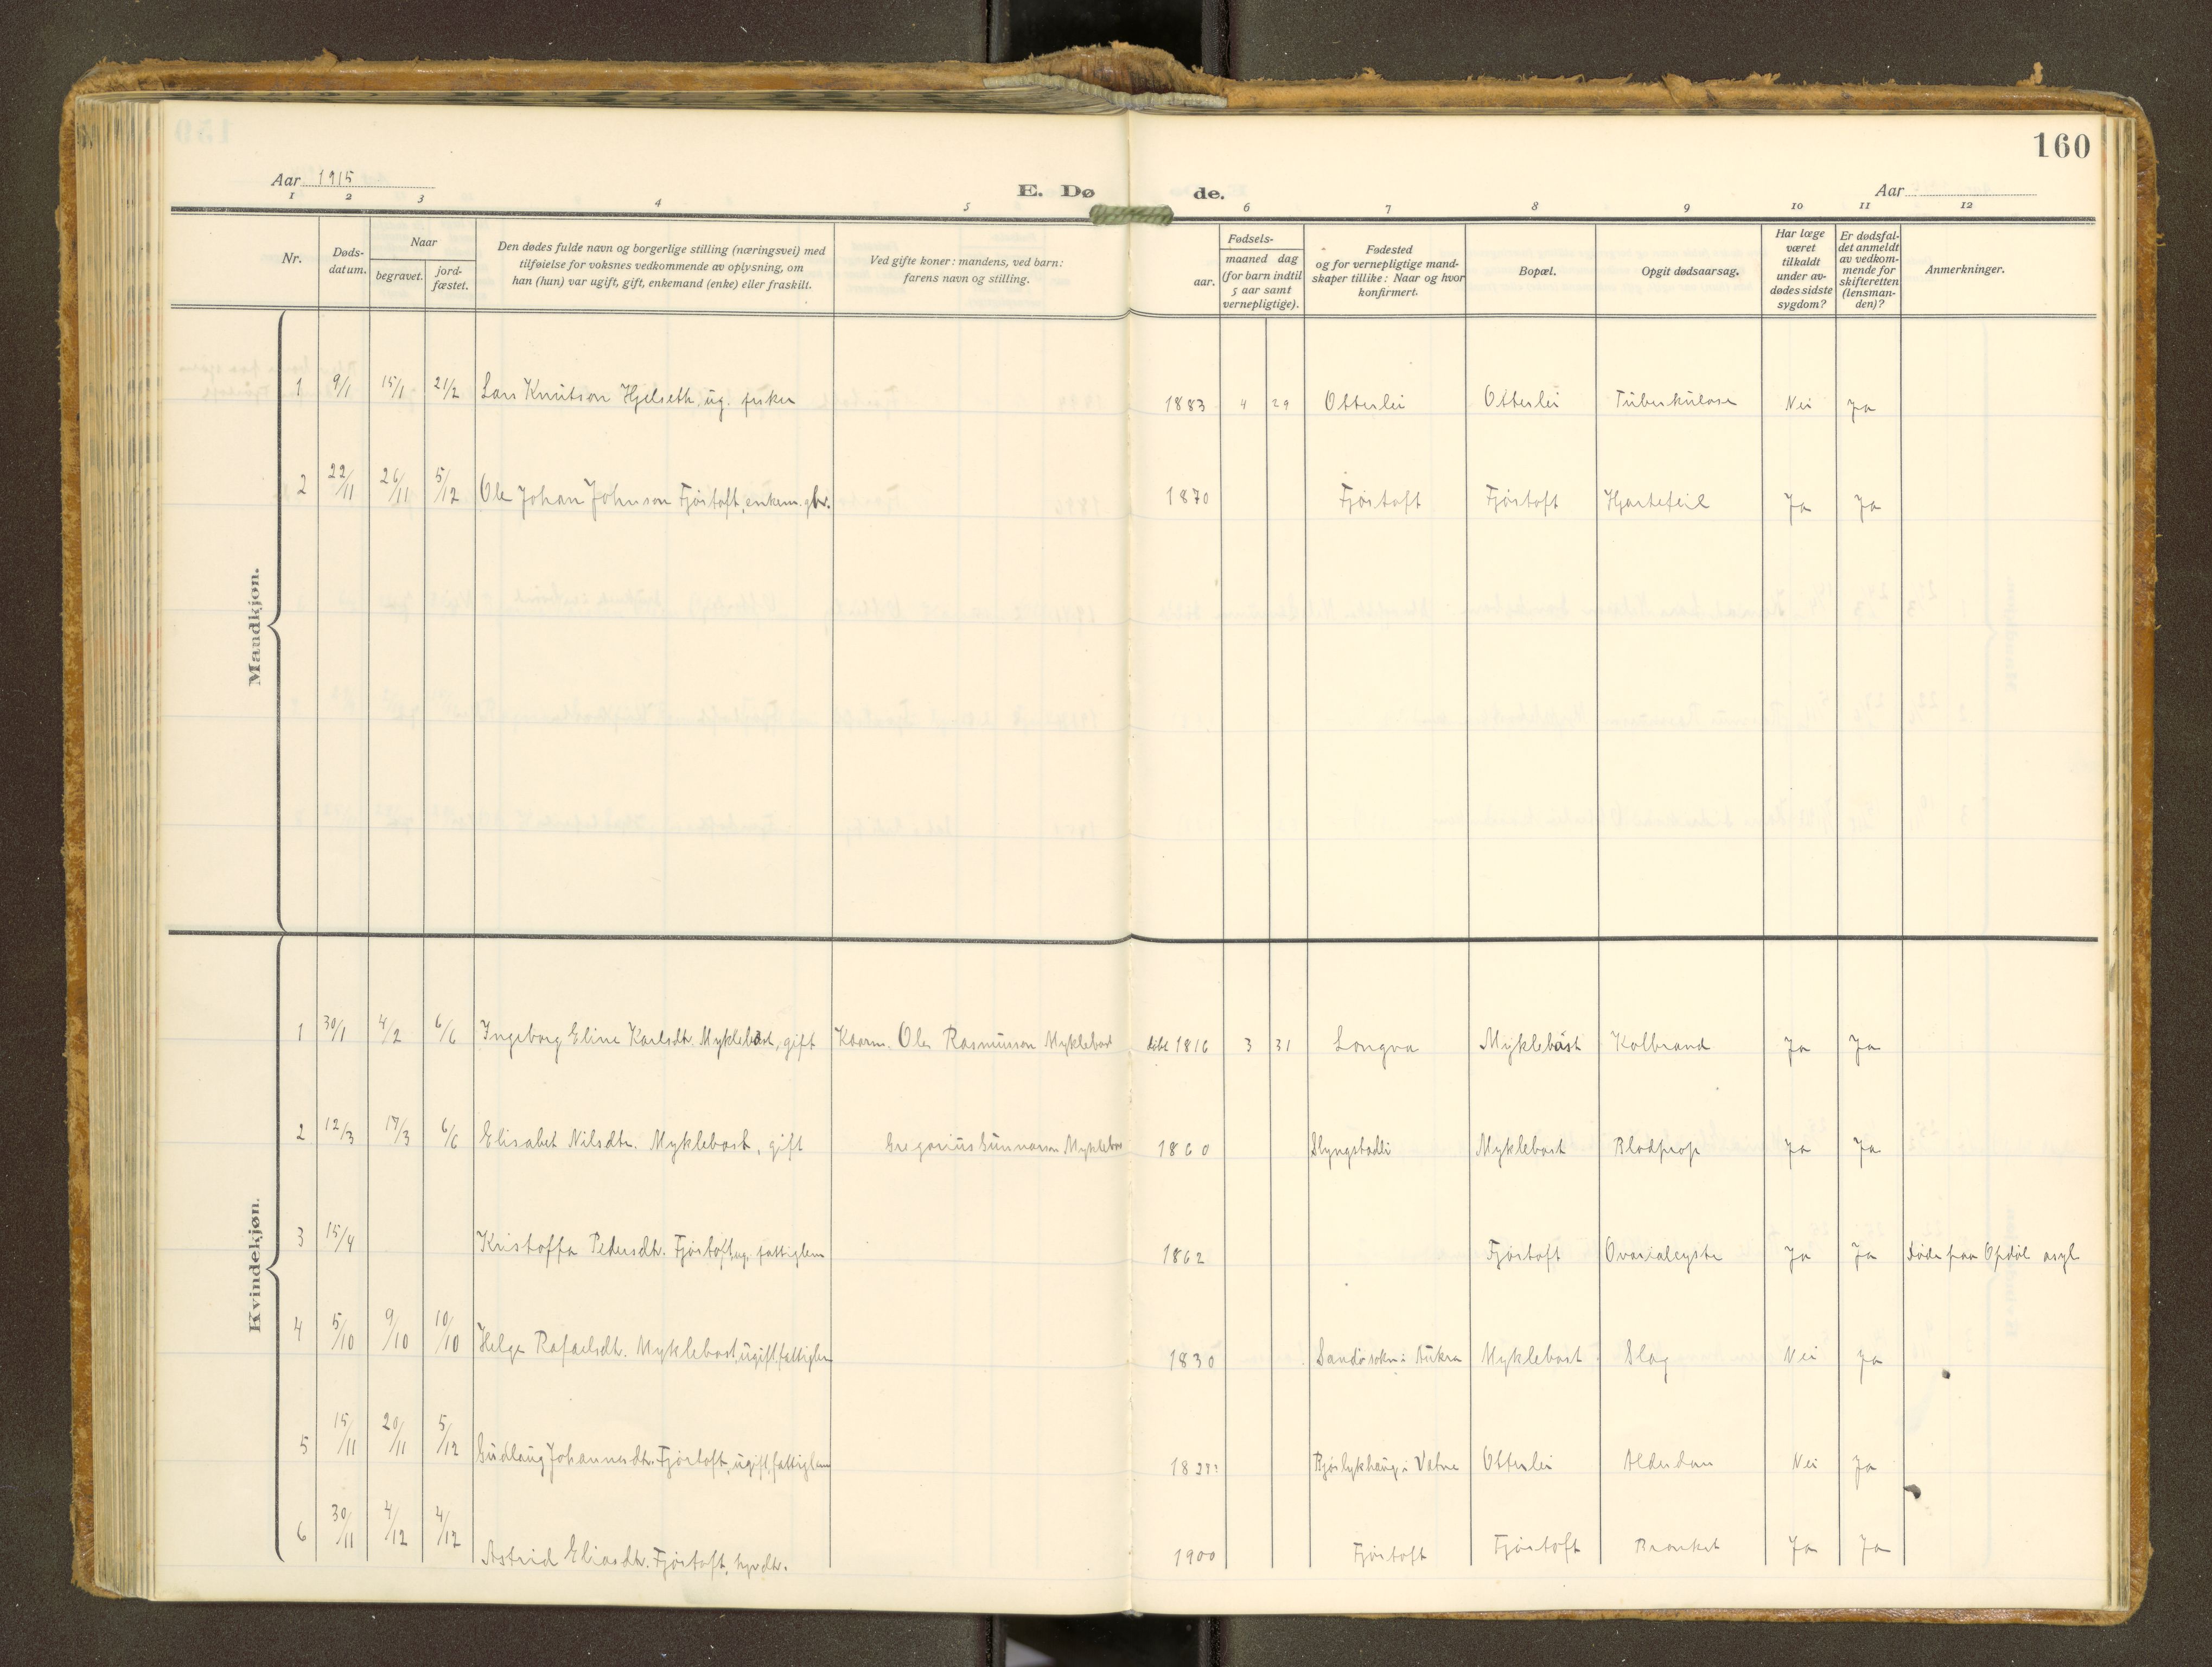 160
Aar 1915
E. Dø de.
Aar
1 2 3 4 5 6 7 8 9 10 11 12
Nr.
Døds-datum.
Naar
begravet.
jord-fæstet.
Den dødes fulde navn og borgerlige stilling (næringsvei) med
tilføielse for voksnes vedkommende av oplysning, om
han (hun) var ugift, gift, enkemand (enke) eller fraskilt.
Ved gifte koner: mandens, ved barn:
farens navn og stilling.
Fødsels-
aar.
maaned dag
(for barn indtil
5 aar samt
vernepligtige).
Fødested
og for vernepligtige mand-
skaper tillike: Naar og hvor
konfirmert.
Bopæl.
Opgit dødsaarsag.
Har læge
været
tilkaldt
under av-
dødes sidste
sygdom?
Er dødsfal-
det anmeldt
av vedkom-
mende for
skifteretten
(lensman-
den)?
Anmerkninger.
Mandkjøn.
1 9/1 15/1 21/2 Lars Knutson Hjelseth, ug. fisker 1883 4 29 Otterlei Otterlei Tuberkulose Nei Ja
2 22/11 26/11 5/12 Ole Johan Johnson Fjörtoft, enkem. gbr. 1870 Fjörtoft Fjörtoft Hjertefeil Ja Ja
Kvindekjøn.
1 30/1 4/2 6/6 Ingeborg Eline Karlsdtr. Myklebost, gift Kaarm. Ole Rasmusson Myklebost 1816 3 31 Longva Myklebust Kolbrand Ja Ja
2 12/3 17/3 6/6 Elisabet Nilsdtr. Myklebost, gift Gregorius Gunnarson Myklebos 1860 Slyngstadli Myklebost Blodprop Ja Ja
3 15/4 Kristoffa Pedersdtr. Fjörtoft, ug. fattiglem 1862 Fjörtoft Ovarialcyste Ja Ja døde paa Opdöl asyl
4 5/10 9/10 10/10 Helge Rafaelsdtr. Myklebost, ugift, fattiglem 1830 Sandö sokn i Aukra Myklebost Slag Nei Ja
5 15/11 20/11 5/12 Gudlaug Johannesdtr. Fjörtoft, ugift, fattiglem Otterlei Alderdom Nei Ja
6 30/11 4/12 4/12 Astrid Eliasdtr. Fjörtoft, 1900 Fjörtoft Fjörtoft Bronkit Ja Ja